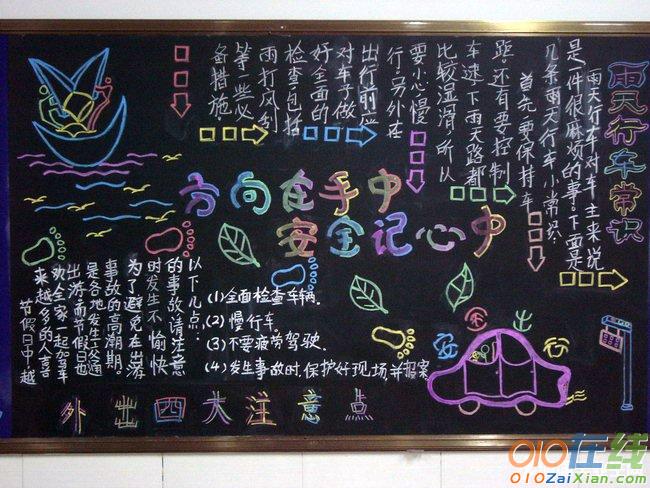 雨天行车常识
雨天行车对车主来说
是一件很麻烦的事。下面是
几条雨天行车小常识
首先,要保持车
距,还有要控制
车速,下雨天路都
比较湿滑,所以
要小心慢
行,另外在
出行前应
对车子做
好全面的
检查,包括
雨打风刮
等一些必
备措施
方向在手中
安全记心中
节假日中越
来越多的人喜
欢全家一起驾车
出游,而节假日也
是各地发生交通
事故的高潮期。
为了避免在出游
时发生不愉快
的事故请注意
以下几点:
(1)全面检查车辆.
(2)慢行车.
(3)不要疲劳驾驶.
(4)发生事故时,保护好现场,并报案
安全出行
外出四大注意点
010在线
010ZaiXian.com